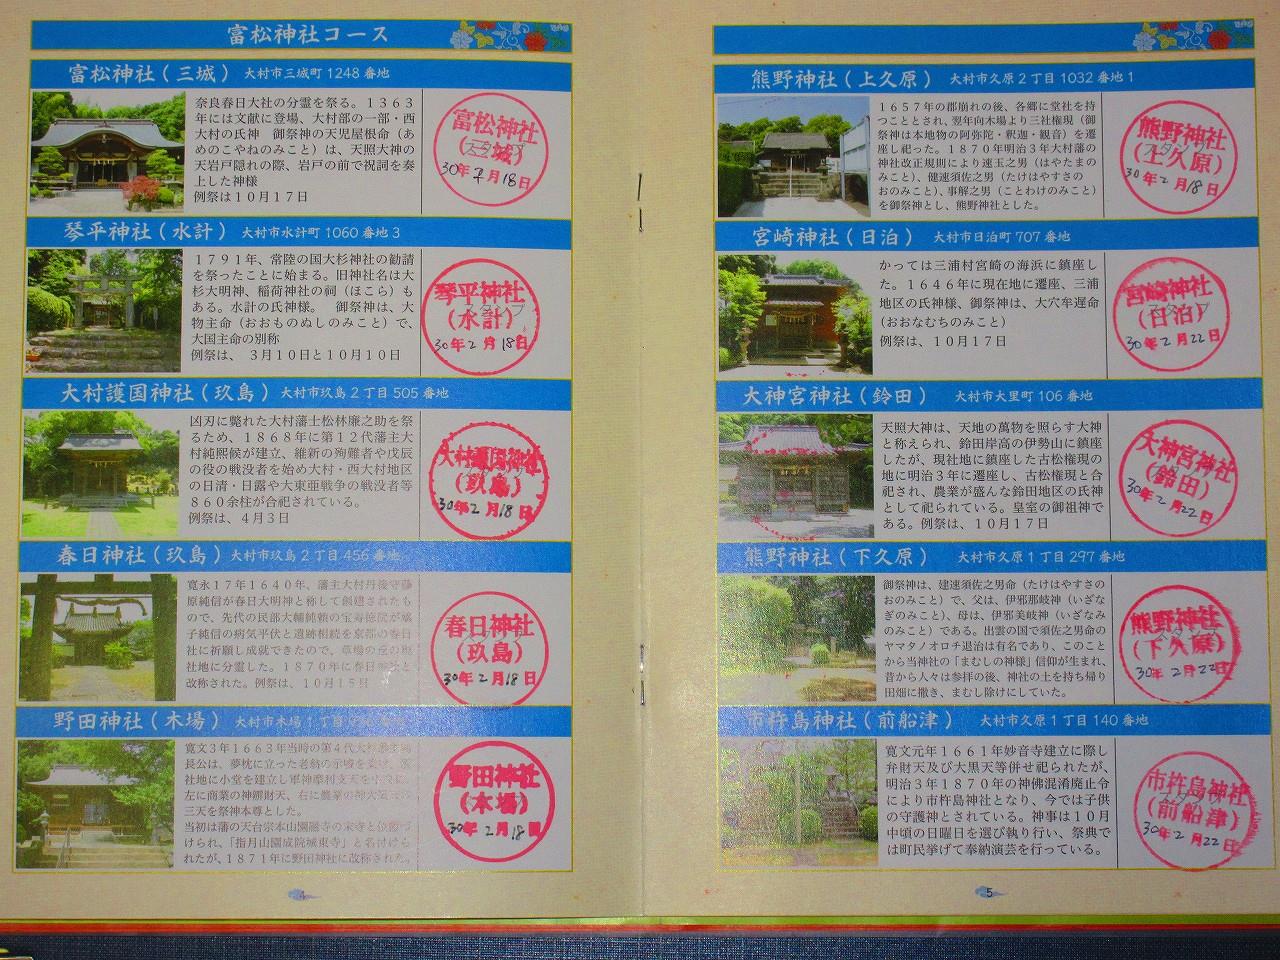 富松神社コース
富松神社(三城) 大村市三城町1248番地
奈良春日大社の分霊を祭る。1363
年には文献に登場、大村部の一部・西
大村の氏神　御祭神の天児屋根命(あ
めのこやねのみこと)は、天照大神の
天岩戸隠れの際、岩戸の前で祝詞を奏
上した神様
例祭は10月17日
富松神社
(三城)
30年 2月18日
琴平神社(水計) 大村市水計町1060番地3
1791年、常陸の国大杉神社の勧請
を祭ったことに始まる。旧神社名は大
杉大明神、稲荷神社の祠(ほこら)も
ある。水計の氏神様。　御祭神は、大
物主命(おおものぬしのみこと)で、
大国主命の別称
例祭は、3月10日と10月10日
琴平神社
(水計)
30年2月18日
大村護国神社(玖島) 大村市玖島2丁目505番地
凶刃に斃れた大村藩士松林廉之助を祭
るため、1868年に第12代藩主大
村純熈候が建立、維新の殉難者や戊辰
の役の戦没者を始め大村・西大村地区
の日清・日露や大東亜戦争の戦没者等
860余柱が合祀されている。
例祭は、4月3日
大村護国神社
(玖島)
30年2月18日
春日神社(玖島) 大村市玖島2丁目456番地
寛永17年1640年、藩主大村丹後守藤
原純信が春日大明神と称して創建されたも
ので、先代の民部大輔純頼の宝寿徳院が嫡
子純信の病気平伏と遺跡相続を京都の春日
社に祈願し成就できたので、草場の
社地に分霊した。1870年に春日神社と
改称された。例祭は、10月15日
春日神社
(玖島)
30年2月18日
野田神社(木場) 大村市木場1丁目
寛文3年1663年当時の第4代大村藩主純
長公は、夢枕に立った老翁の示唆を
社地に小堂を建立し軍神摩利支天を
左に商業の神辨財天、右に農業の神大黒天の
三天を祭神本尊とした。
当初は藩の天台宗本山園融寺の末寺と位置づ
けられ、「指月山園成院城東寺」と名付けら
れたが、1871年に野田神社に改称された。
野田神社
(木場)
30年2月18日
4
熊野神社(上久原) 大村市久原2丁目1032番地1
1657年の郡崩れの後、各郷に堂社を持
つこととされ、翌年向木場より三社権現(御
祭神は本地物の阿弥陀・釈迦・観音)を遷
座し祀った。1870年明治3年大村藩の
神社改正規則により速玉之男(はやたまの
みこと)、健速須佐之男(たけはやすさの
おのみこと)、事解之男(ことわけのみこと)
を御祭神とし、熊野神社とした。
熊野神社
(上久原)
30年2月18日
宮崎神社(日泊) 大村市日泊町707番地
かっては三浦村宮崎の海浜に鎮座し
た。1646年に現在地に遷座、三浦
地区の氏神様、御祭神は、大穴牟遅命
(おおなむちのみこと)
例祭は、10月17日
宮崎神社
(日泊)
30年2月22日
大神宮神社(鈴田) 大村市大里町106番地
天照大神は、天地の萬物を照らす大神
と称えられ、鈴田岸高の伊勢山に鎮座
したが、現社地に鎮座した古松権現の
地に明治3年に遷座し、古松権現と合
祀され、農業が盛んな鈴田地区の氏神
として祀られている。皇室の御祖神で
ある。例祭は、10月17日
大神宮神社
(鈴田)
30年2月22日
熊野神社(下久原) 大村市久原1丁目297番地
御祭神は、建速須佐之男命(たけはやすさの
おのみこと)で、父は、伊邪那岐神(いざな
ぎのみこと)、母は、伊邪美岐神(いざなみ
のみこと)である。出雲の国で須佐之男命の
ヤマタノオロチ退治は有名であり、このこと
から当神社の「まむしの神様」信仰が生まれ、
昔から人々は参拝の後、神社の土を持ち帰り
田畑に撒き、まむし除けにしていた。
熊野神社
(下久原)
30年2月22日
市杵島神社(前船津) 大村市久原1丁目140番地
寛文元年1661年妙音寺建立に際し
弁財天及び大黒天等併せ祀られたが、
明治3年1870年の神佛混淆廃止令
により市杵島神社となり、今では子供
の守護神とされている。神事は10月
中頃の日曜日を選び執り行い、祭典で
は町民挙げて奉納演芸を行っている。
市杵島神社
(前船津)
30年2月22日
5